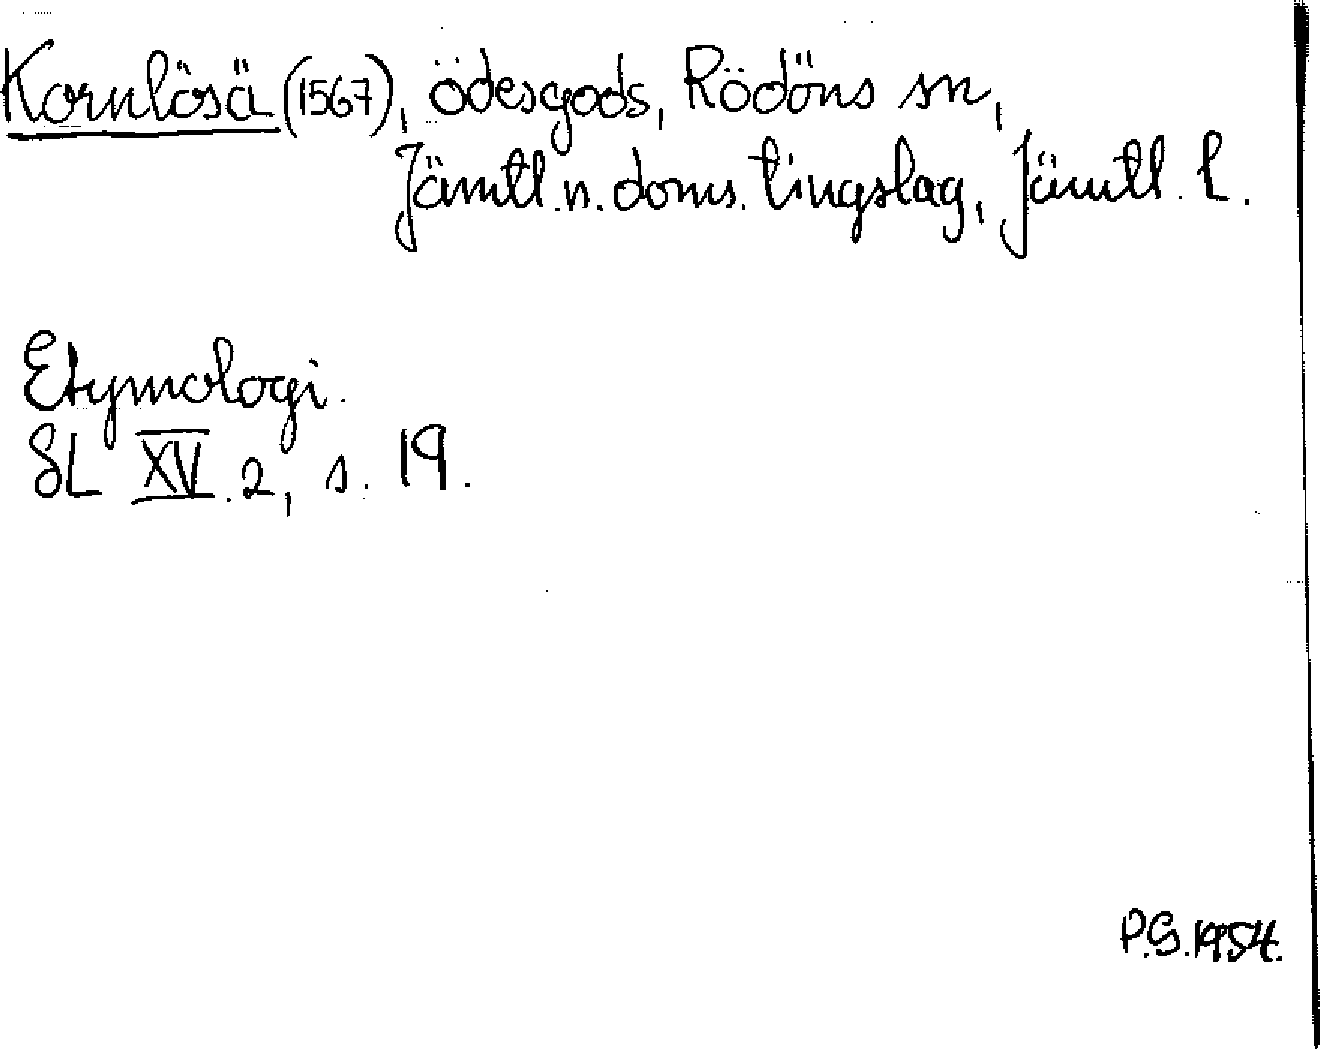 Kornlösä (1567), ödesgods, Rödöns sn,
Jämtl. n. doms. tingslag, Jämtl. l.
Etymologi.
SL XV. 2, s. 19.
P.G. 1954.